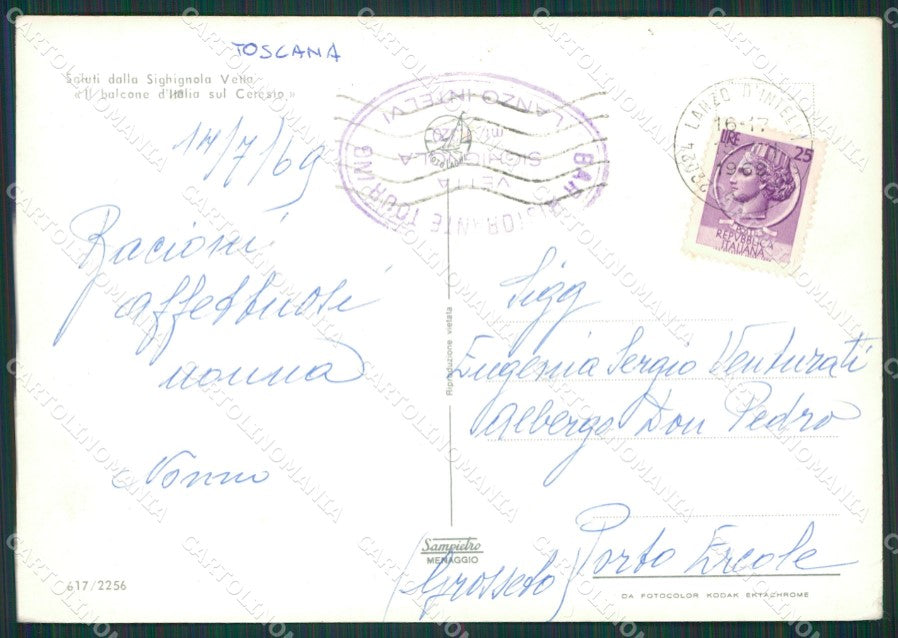 TOSCANA
Saluti dalla Sighignola Vetta
« Il balcone d'Italia sul Ceresio »
14/7/69
Bacioni
affettuosi
nonna
Nonno
617/2256
BAR RISTORANTE TOURING
VETTA
SIGHIGNOLA
LANZO INTELVI
Riproduzione vietata
Sampietro
MENAGGIO
22024 LANZO D'INTELVI
16-17
1968
LIRE 25
REPUBBLICA
ITALIANA
Sigg
Eugenia Sergio Venturati
Albergo Don Pedro
Porto Ercole
(Grosseto)
DA FOTOCOLOR KODAK EKTACHROME
CARTOLINOMANIA